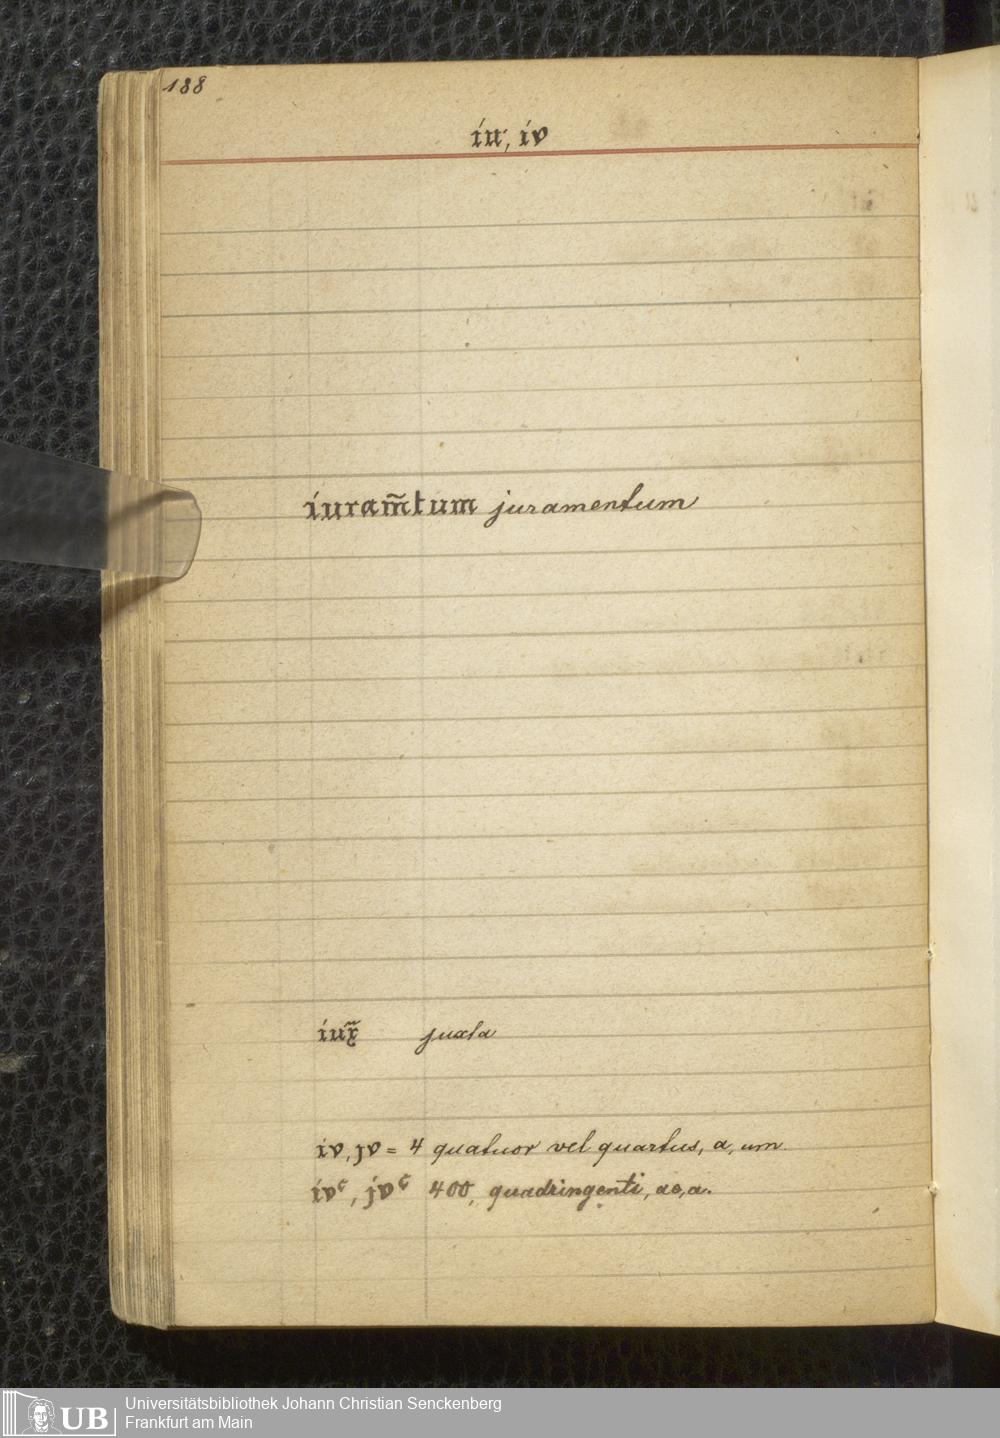 188
iu, iv
iuram̃tum juramentum
iux̃ juxta
iv, jv = 4 quatuor vel quartus, a, um.
ivᶜ, jvᶜ 400, quadringenti, ae, a.
UB
Universitätsbibliothek Johann Christian Senckenberg
Frankfurt am Main